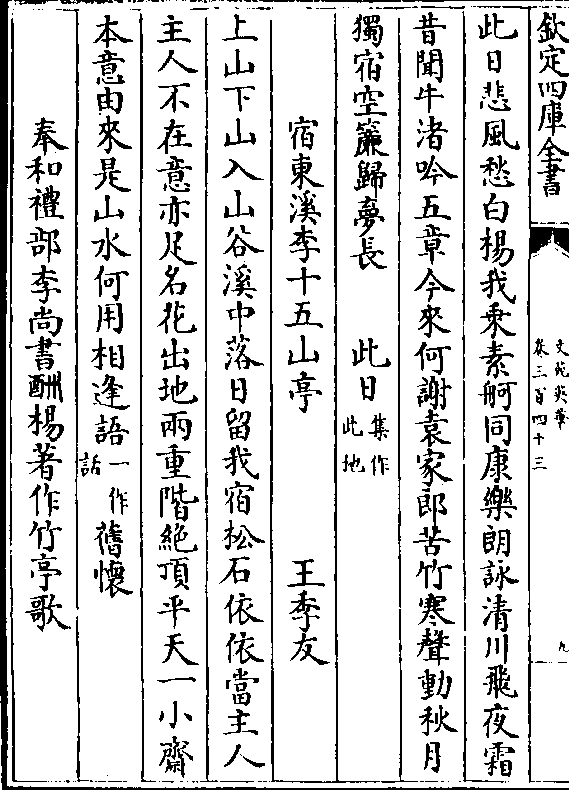 欽定四庫全書
文苑英華
卷三百四十三
九
此日悲風愁白楊我乗素舸同康樂朗詠清川飛夜霜
昔聞牛渚吟五章今來何謝袁家郎苦竹寒聲動秋月
獨宿空簾歸夢長 此日集作此地
宿東溪李十五山亭 王季友
上山下山入山谷溪中落日留我宿松石依依當主人
主人不在意亦足名花出地兩重階絶頂平天一小齋
本意由來是山水何用相逢語一作話舊懷
奉和禮部李尚書酬楊著作竹亭歌